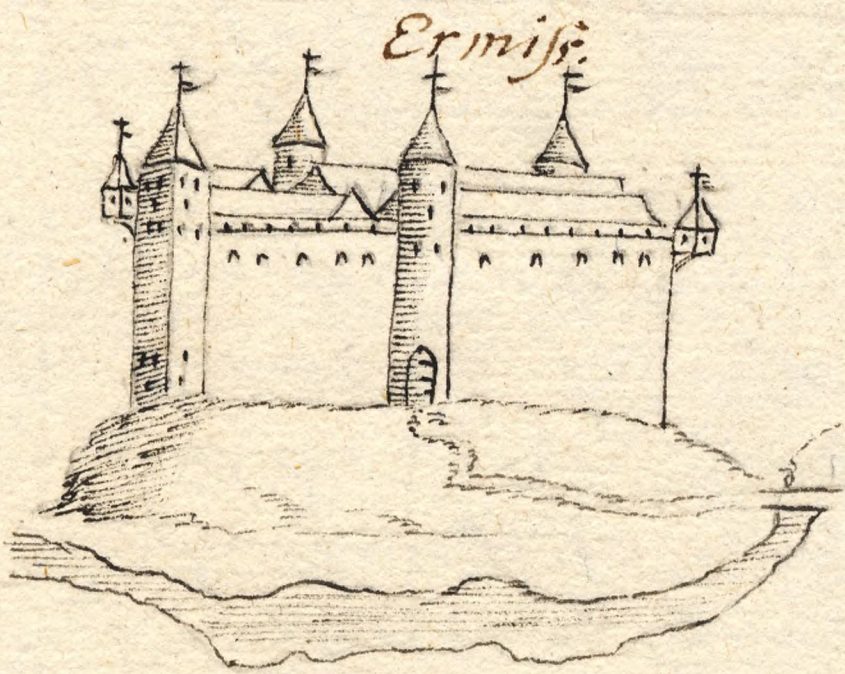 Ermiſs.